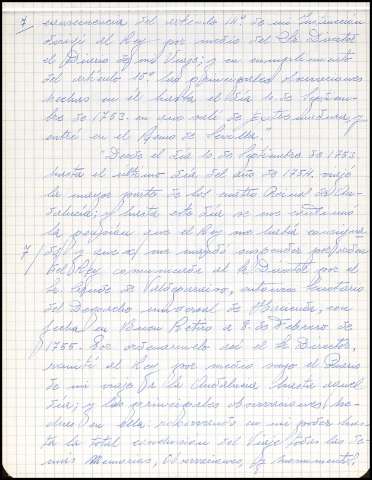 7 consecuencia del artículo 14º de mi Instrucción
dirigí al Rey por medio del Sr. Director
el Diario de mi Viaje; y en cumplimiento
del artículo 15º las principales observaciones
hechas en él hasta el día 10 de Septiem-
bre de 1753 en que salí de Extremadura y
entré en el Reino de Sevilla."
"Desde el día 10 de Septiembre de 1753
hasta el último día del año de 1754
la mayor parte de los cuatro Reinos de An-
dalucía; y hasta este día se me continuó
la pensión que el Rey me había consigna-
7/ do/ que se me mandó suspender por orden
del Rey comunicada al Sr. Director por el
Sr. Conde de Valparaíso, entonces Secretario
del Despacho universal de Hacienda, con
fecha en Buen Retiro a 8 de Febrero de
1755. Por ordenármelo así el Sr. Director,
remití al Rey por medio suyo el Diario
de mi viaje a la Andalucía hasta aquel
día; y las principales observaciones he-
chas en ella, reservando en mi poder has-
ta la total conclusión del Viaje todas las de-
más Memorias, Observaciones,